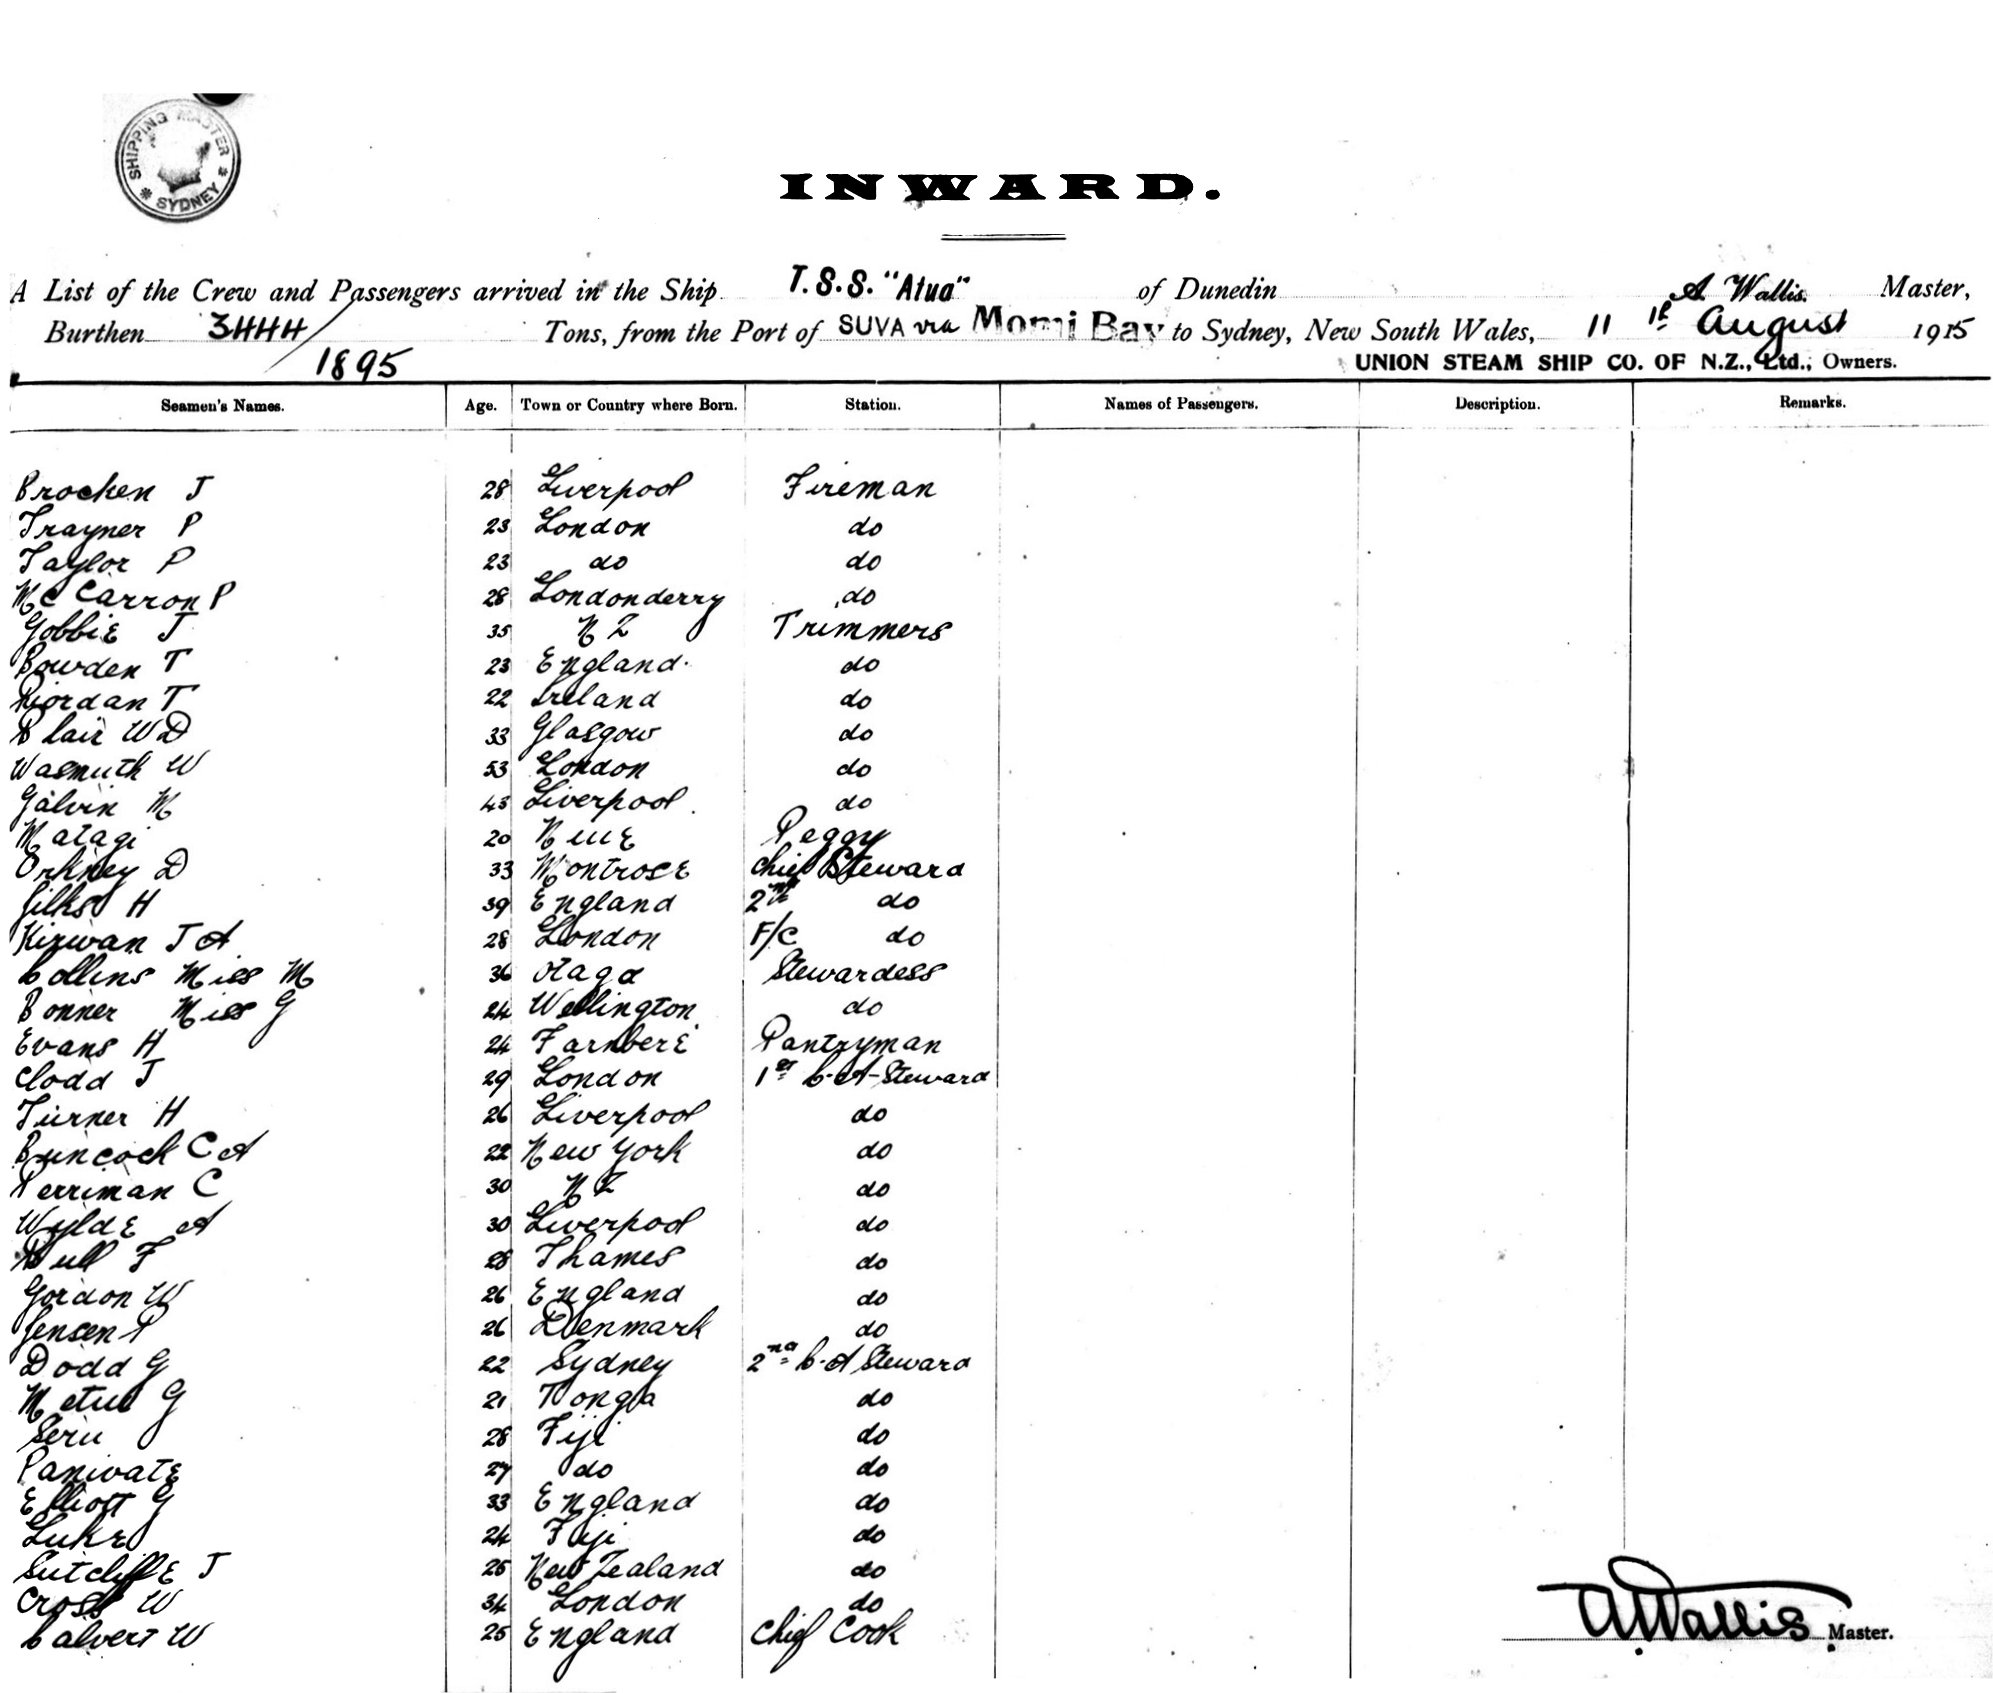 SHIPPING MASTER
* SYDNEY *
INWARD.
A List of the Crew and Passengers arrived in the Ship T.S.S. "Atua" of Dunedin A Wallis. Master,
Burthen 3444/1895 Tons, from the Port of SUVA via Momi Bay to Sydney, New South Wales, 11 th August 1915
UNION STEAM SHIP CO. OF N.Z., Ltd., Owners.
Seamen's Names. Age. Town or Country where Born. Station. Names of Passengers. Description. Remarks.
Brocken J 28 Liverpool Fireman
Trayner P 23 London do
Taylor P 23 do do
McCarron P 28 Londonderry do
Gobbie J 35 NZ Trimmers
Bowden T 23 England. do
Riordan T 22 Ireland do
Blair W D 33 Glasgow do
Wasmuth W 53 London do
Galvin M 43 Liverpool do
Matagi 20 Niue Peggy
Orkney D 33 Montrose Chief Steward
Jilks H 39 England 2nd do
Kirwan J A 28 London F/C do
Collins Miss M 36 Otago Stewardess
Bonner Miss G 24 Wellington do
Evans H 24 Pantryman
Clodd J 29 London 1st C.A-Steward
Turner H 26 Liverpool do
Buncock C A 22 New York do
Perriman C 30 NZ do
Wylde A 30 Liverpool do
Bull F 28 Thames do
Gordon W 26 England do
Jensen P 26 Denmark do
Dodd G 22 Sydney 2nd C.A Steward
Metui G 21 Tonga do
Seru 28 Fiji do
Panivate 27 do do
Elliott G 33 England do
Luke 24 Fiji do
Sutcliffe J 25 New Zealand do
Cross W 34 London do
Calvert W 25 England Chief Cook
A Wallis Master.